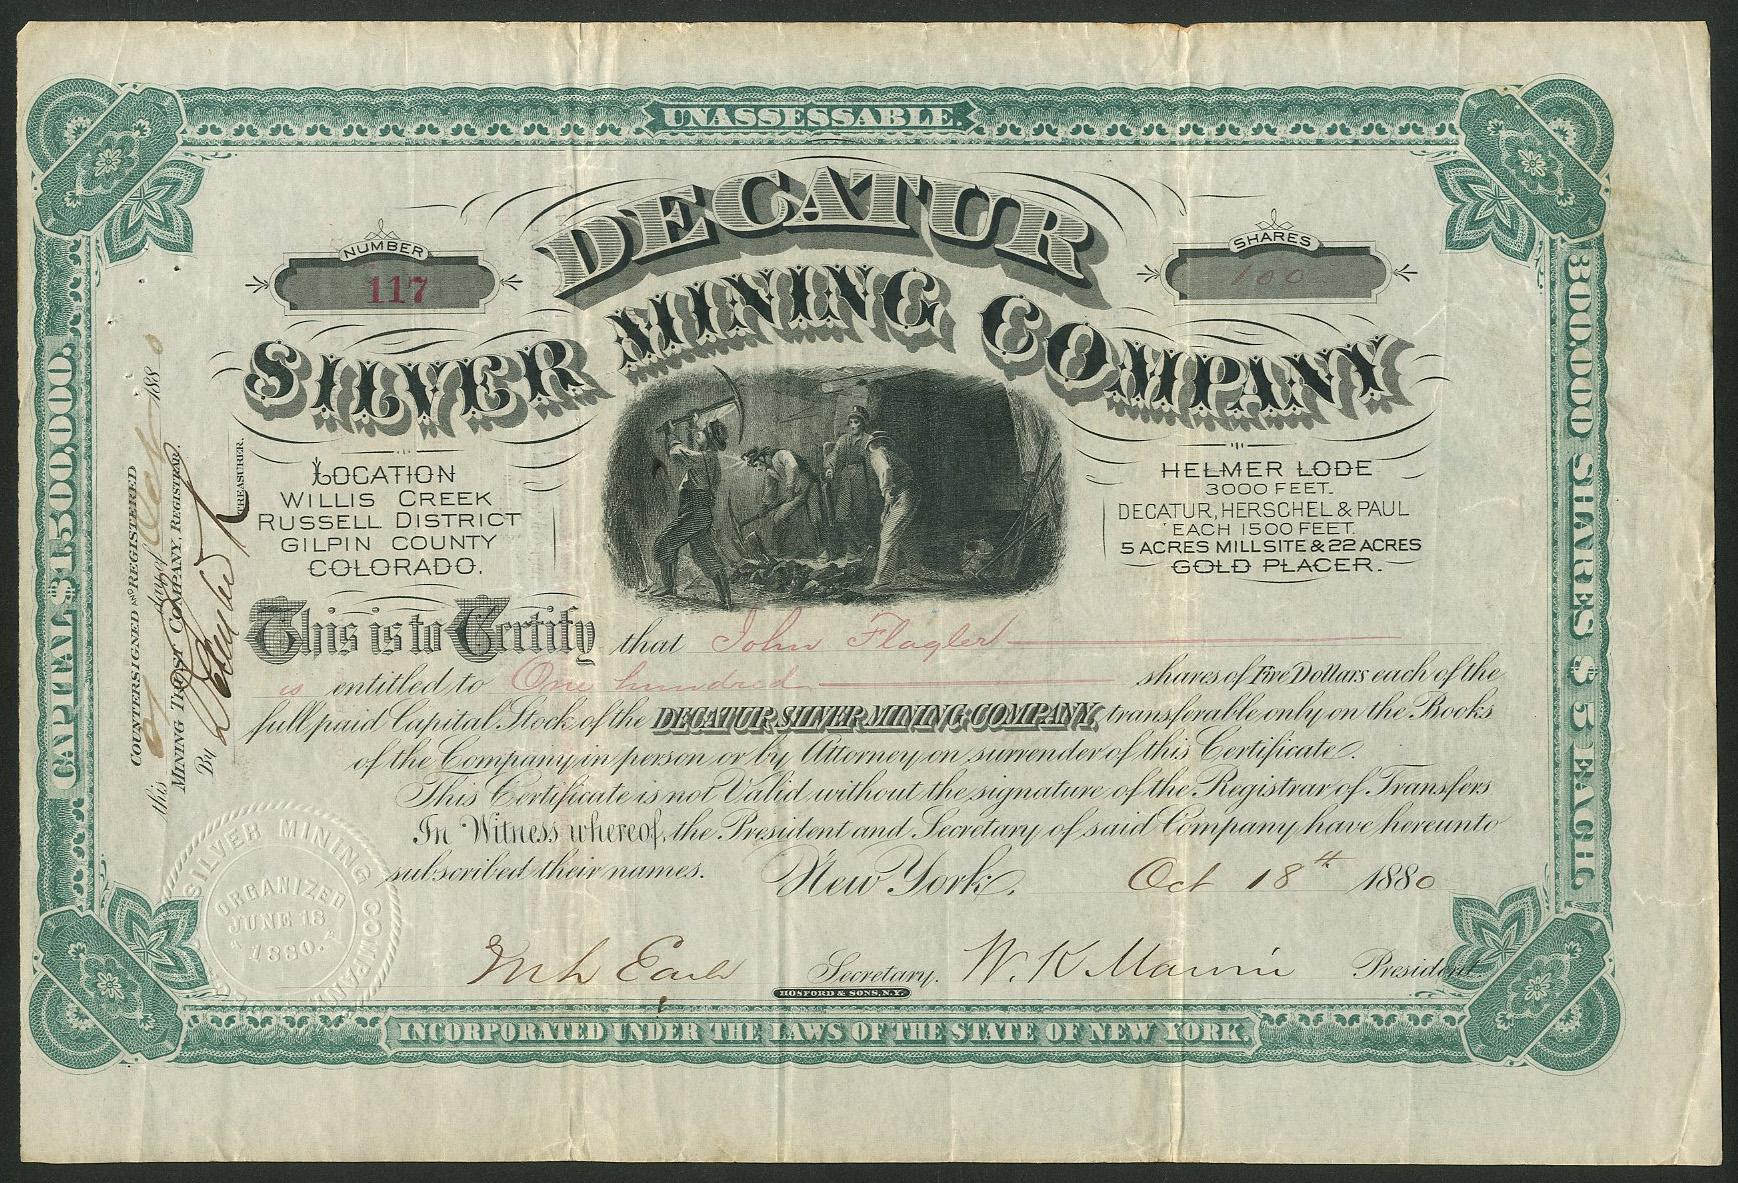 UNASSESSABLE.
DECATUR
SILVER MINING COMPANY
NUMBER
117
SHARES
100
LOCATION
WILLIS CREEK
RUSSELL DISTRICT
GILPIN COUNTY
COLORADO.
HELMER LODE
3000 FEET.
DECATUR, HERSCHEL & PAUL
EACH 1500 FEET.
5 ACRES MILLSITE & 22 ACRES
GOLD PLACER.
This is to Certify that John Flagler
is entitled to One hundred shares of Five Dollars each of the
full paid Capital Stock of the DECATUR SILVER MINING COMPANY, transferable only on the Books
of the Company in person or by Attorney on surrender of this Certificate.
This Certificate is not Valid without the signature of the Registrar of Transfers
In Witness whereof, the President and Secretary of said Company have hereunto
subscribed their names. New York, Oct 18th 1880
Secretary. W. K. Marvin President
HOSFORD & SONS, N.Y.
INCORPORATED UNDER THE LAWS OF THE STATE OF NEW YORK.
CAPITAL $1,500,000.
300,000 SHARES $5 EACH.
COUNTERSIGNED AND REGISTERED
this 21 day of Oct 1880
MINING TRUST COMPANY, REGISTRAR.
By
TREASURER.
SILVER MINING COMPANY
ORGANIZED
JUNE 18
1880.